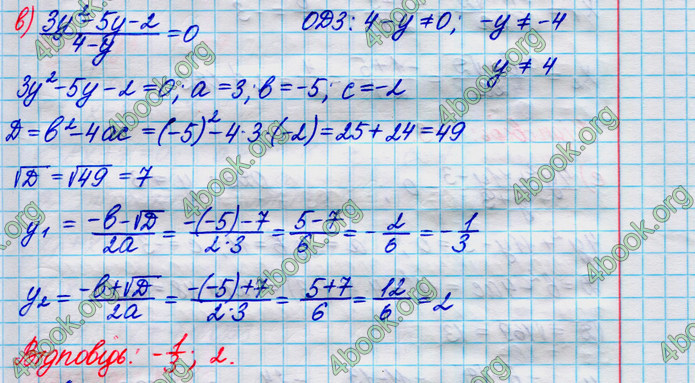 в) (3y²-5y-2)/(4-y) = 0    ОДЗ: 4-y≠0; -y≠-4
y≠4
3y²-5y-2=0; a=3; в=-5; c=-2
D=в²-4ac=(-5)²-4·3·(-2)=25+24=49
√D=√49=7
y₁ = (-в-√D)/(2a) = (-(-5)-7)/(2·3) = (5-7)/6 = -2/6 = -1/3
y₂ = (-в+√D)/(2a) = (-(-5)+7)/(2·3) = (5+7)/6 = 12/6 = 2
Відповідь: -1/3; 2.
4book.org